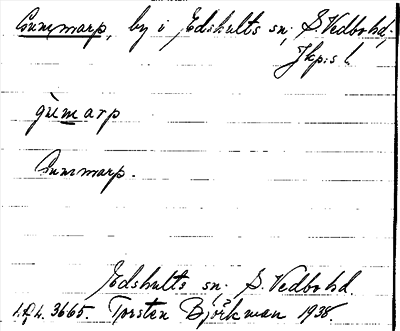 Gummarp, by i Edshults sn, S. Vedbo hd,
Jkp:s l
gùmarp
Gummarp.
Edshults sn. S. Vedbo hd.
I.F.L. 3665. Torsten Björkman 1938.